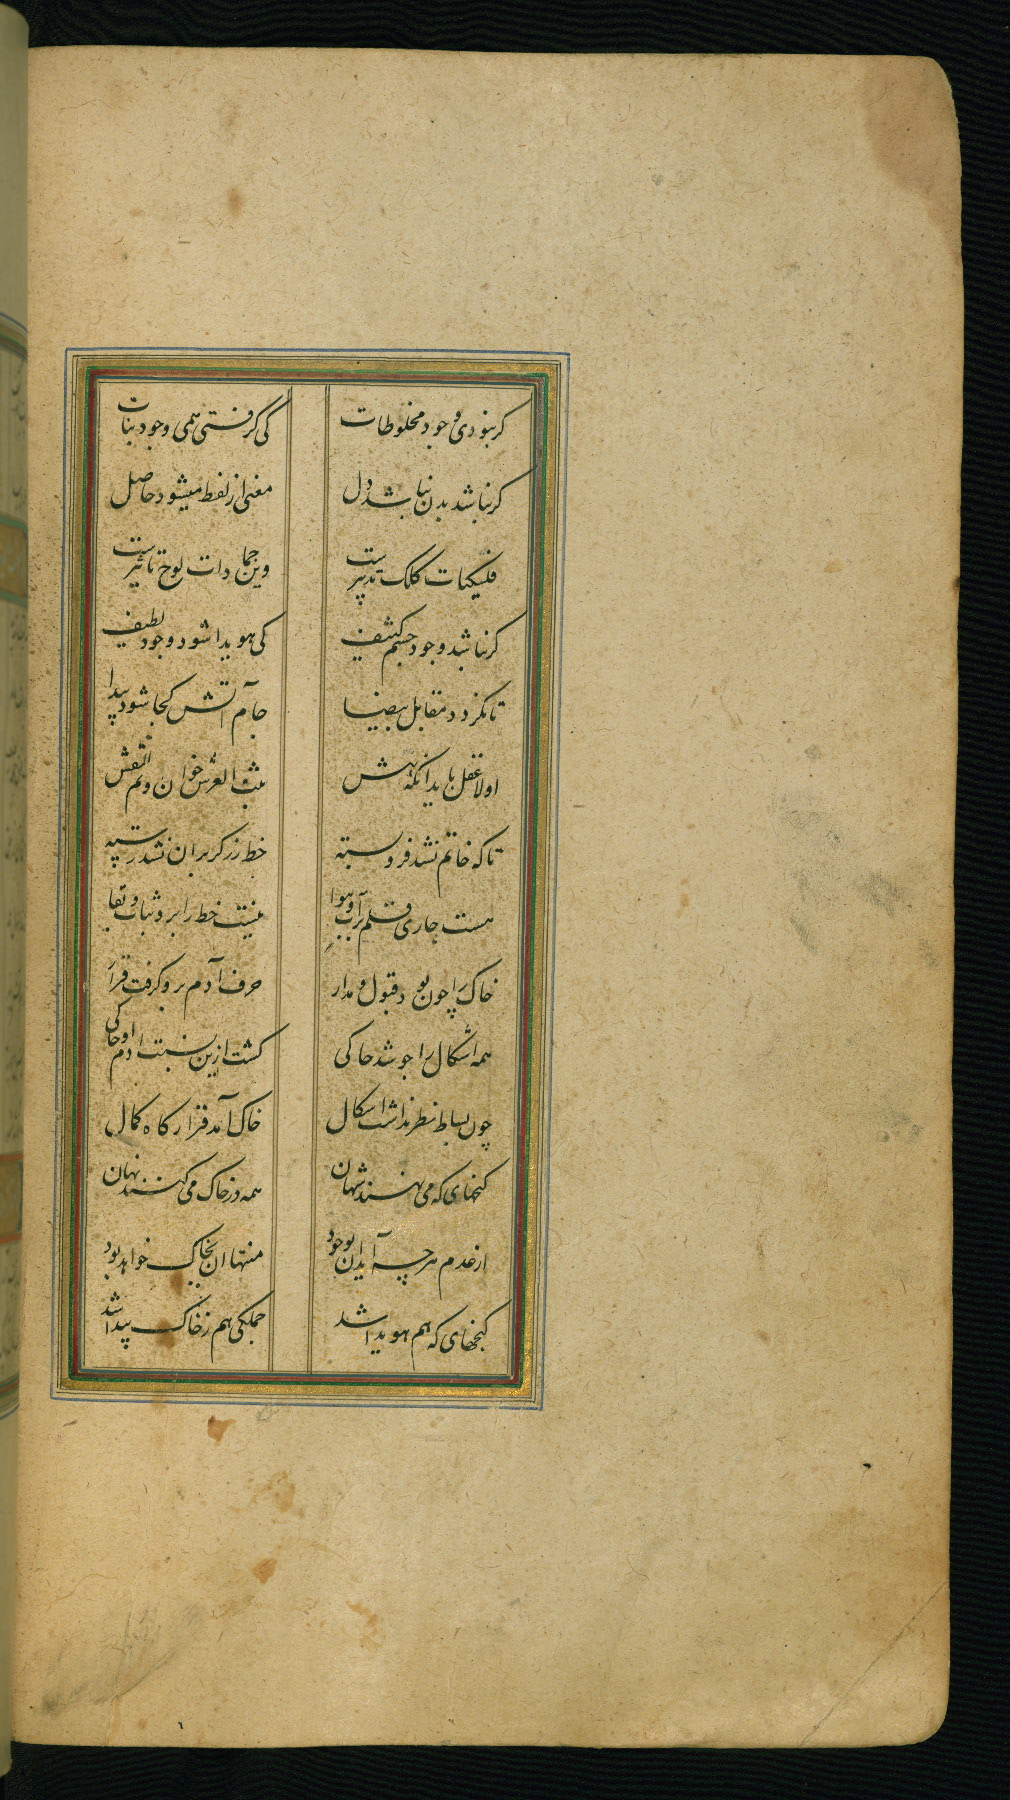 کر نبودی وجود مخلوطات کی کرفتی همی وجود نبات
کر نباشد بدن نباشد دل معنی از لفط میشود حاصل
فلکیات کلک تدبیرست وین جمادات لوح تاثیرست
کر نباشد وجود جسم کثیف کی هویدا شود وجود لطیف
تا نکردد مقابل بیضیا جام آتش کجا شود پیدا
اولا عقل باید انکه نهش ثبت العرش خوان و ثم انقش
تا که خاتم نشد فرو بسته خط زر کر بران نشد رسته
هست جاری قلم بر آب و هوا نیست خط را برو ثبات و بقا
خاک را چون بود قبول و مدار حرف آدم برو کرفت قرار
همه اشکال را جو شد حاکی کشت ازین نسبت آدم او خاکی
چون بساط نطر نداشت اشکال خاک آمد قرارکاه کمال
کنجهای که می نهند شهان همه در خاک می کنند نهان
از عدم هرچه آید آن بوجود منتها ان بخاک خواهد بود
کنجهای که هم هویدا شد جملکی هم ز خاک پیدا شد